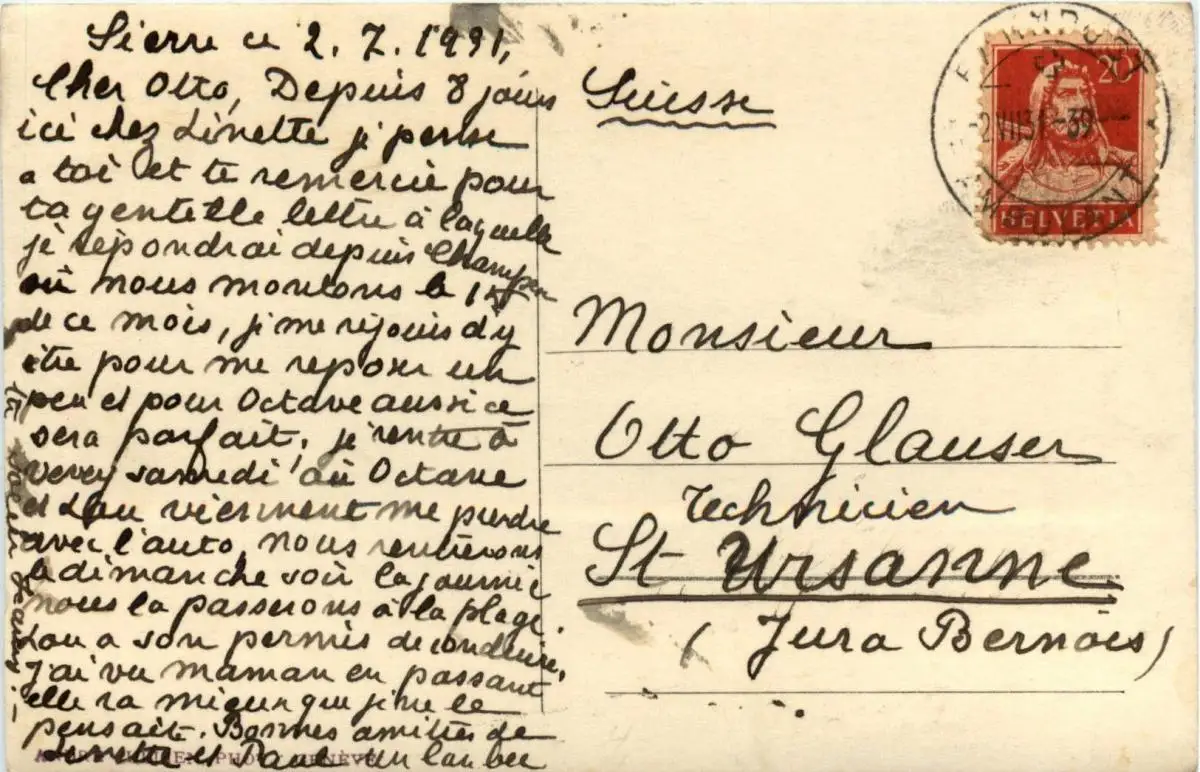 Sierre ce 2. 7. 1931,
Cher Otto, Depuis 8 jours
ici chez Linette je pense
a toi et te remercie pour
ta gentille lettre à laquelle
je répondrai depuis Champex
où nous montons le 15
de ce mois, je me réjouis d'y
être pour me reposer un
peu et pour Octave aussi ce
sera parfait. je rentre à
Vevey samedi où Octave
et Lou viennent me prendre
avec l'auto, nous rentrerons
le dimanche soir la journée
nous la passerons à la plage.
Lou a son permis de conduire,
J'ai vu maman en passant
elle va mieux que je ne le
pensait. Bonnes amitiés de
Linette et Paul Un bon bec
ta
Suisse
20
2.VII.31
HELVETIA
Monsieur
Otto Glauser
Technicien
St Ursanne
(Jura Bernois)
GENÈVE